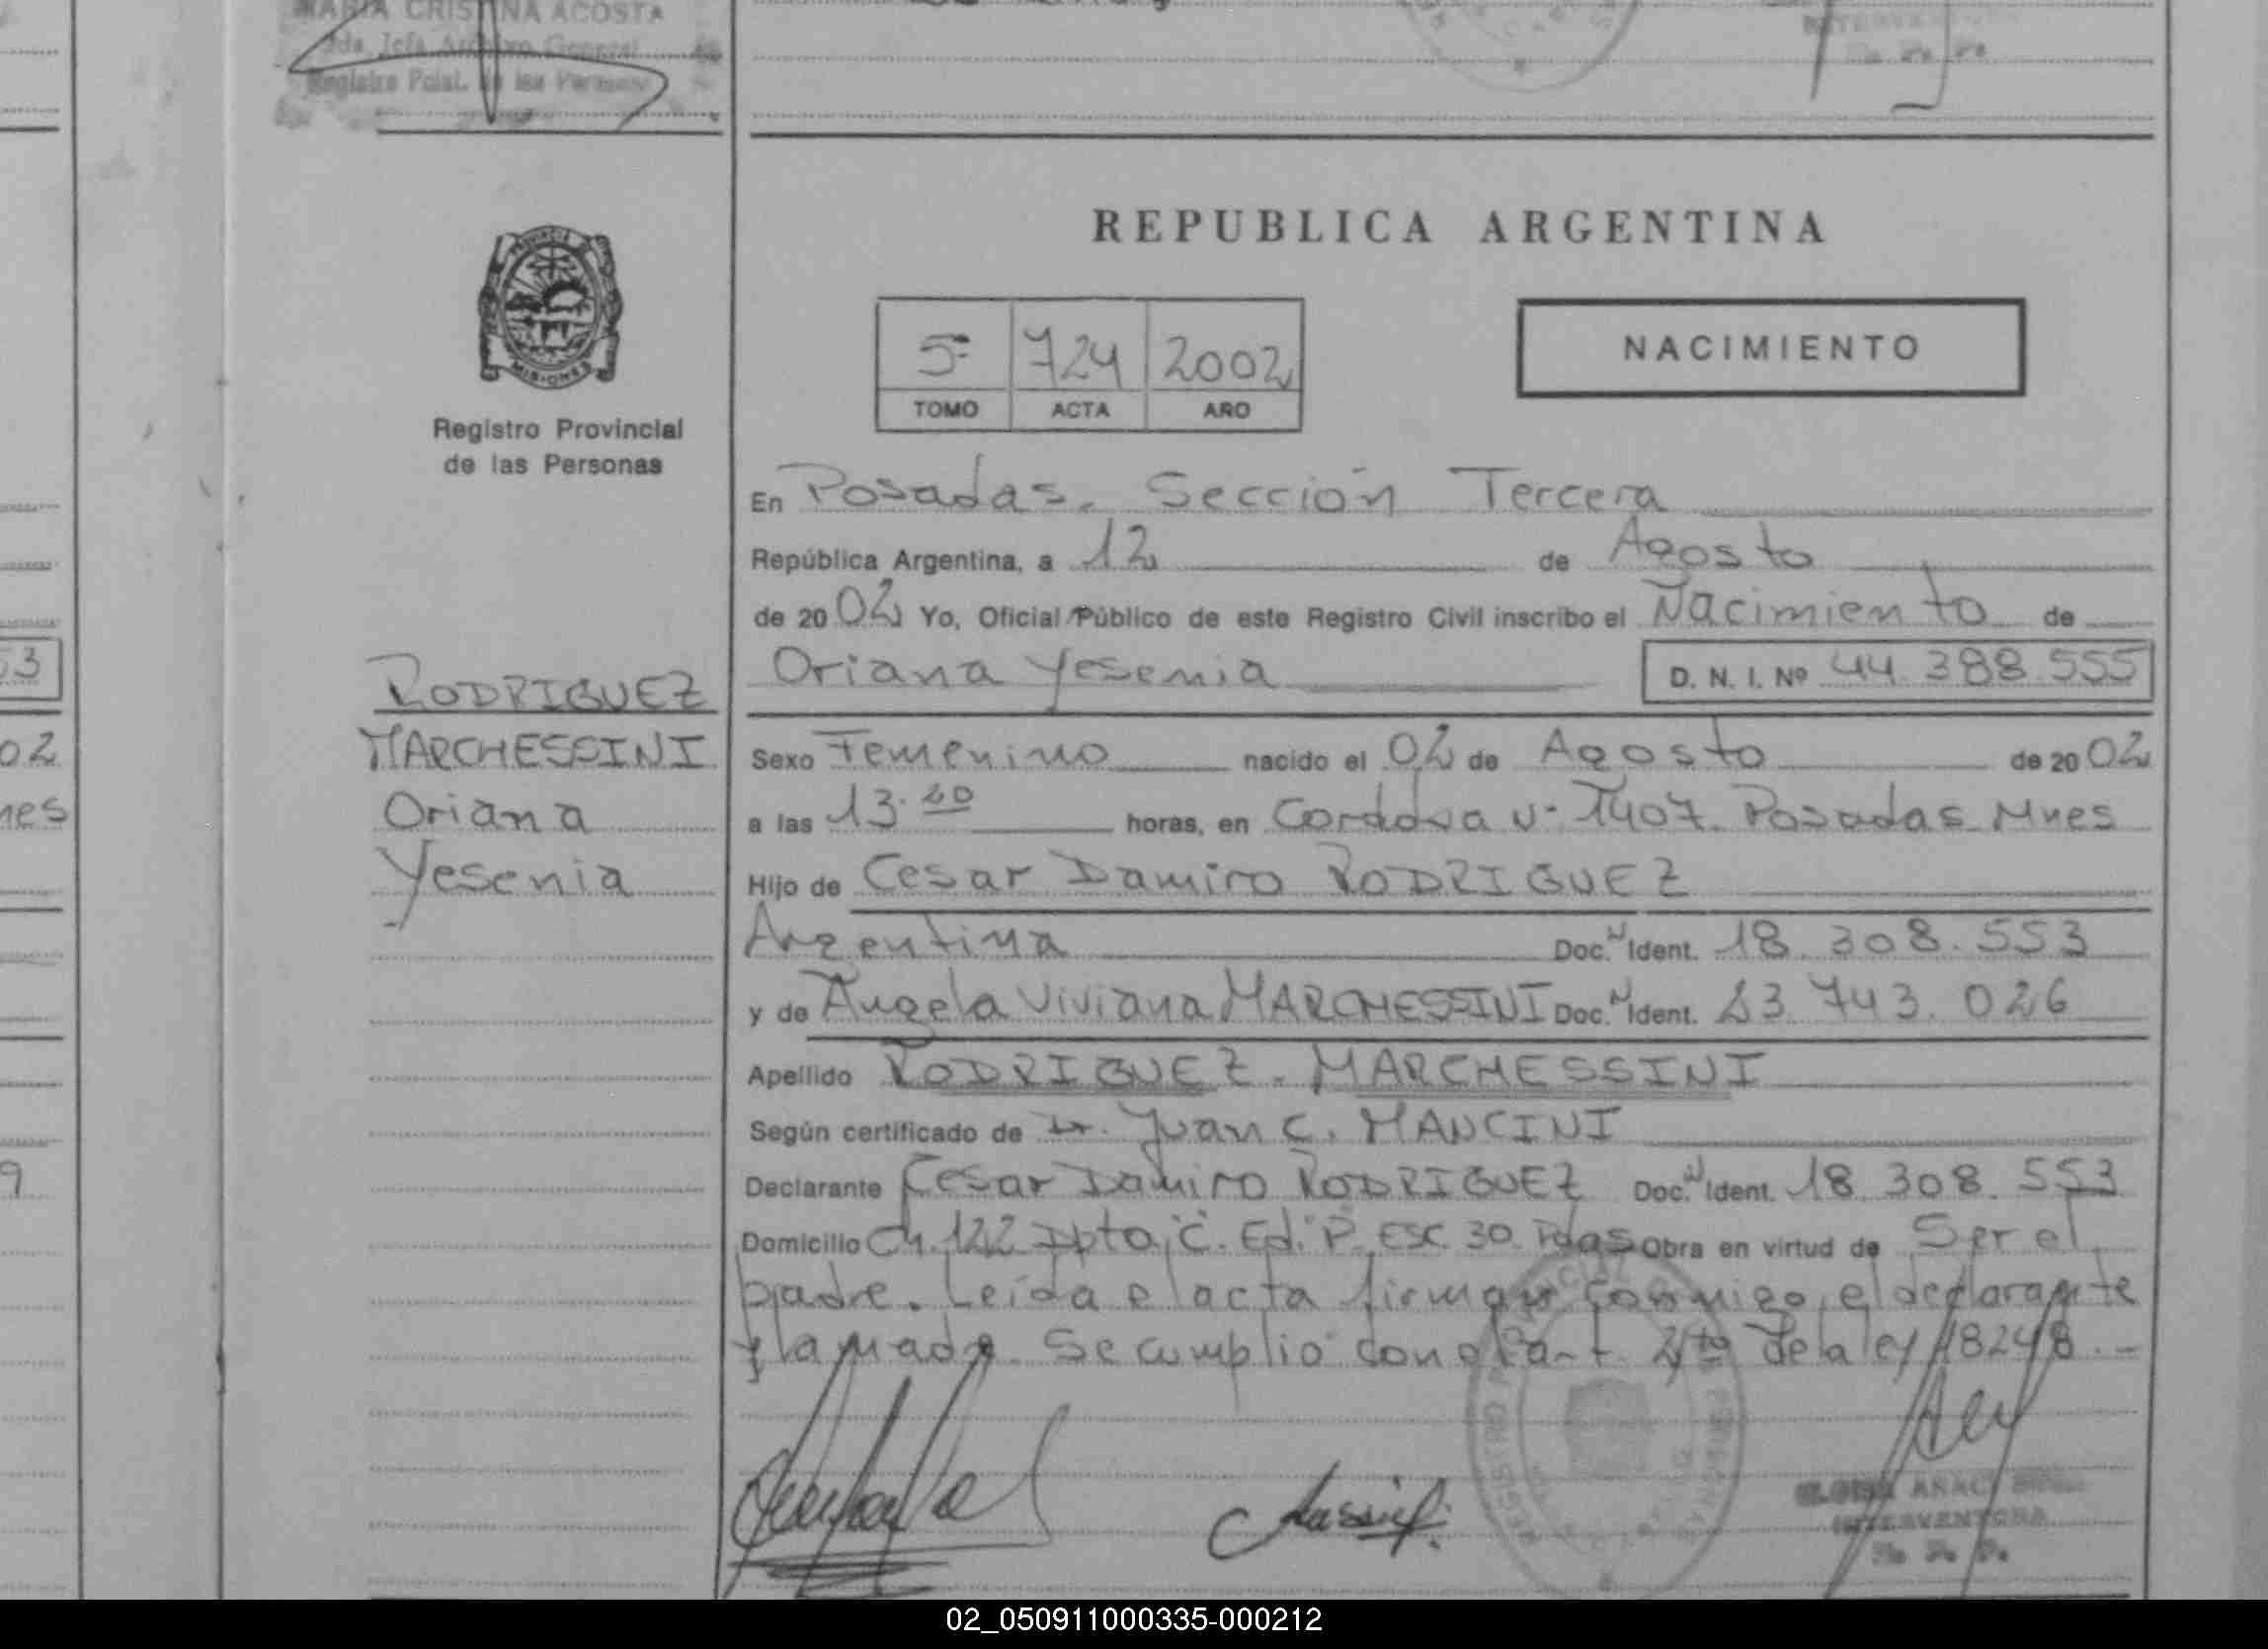 MARIA CRISTINA ACOSTA
Jefa Archivo General
Registro Pcial. de las Personas
REPUBLICA ARGENTINA
PROVINCIA
MISIONES
Registro Provincial
de las Personas
5º 724 2002
TOMO ACTA AÑO
NACIMIENTO
En Posadas. Sección Tercera
República Argentina, a 12 de Agosto
de 2002 Yo, Oficial Público de este Registro Civil inscribo el Nacimiento de
Oriana Yesenia D. N. I. Nº 44.388.555
RODRIGUEZ
MARCHESSINI
Oriana
Yesenia
Sexo Femenino nacido el 02 de Agosto de 2002
a las 13.20 horas, en Cordova Nº 1407. Posadas Mnes
Hijo de Cesar Damiro RODRIGUEZ
Argentina Doc. N Ident. 18.308.553
y de Angela Viviana MARCHESSINI Doc. N Ident. 23.743.026
Apellido RODRIGUEZ. MARCHESSINI
Según certificado de Dr. Juan C. MANCINI
Declarante Cesar Damiro RODRIGUEZ Doc. N Ident. 18.308.553
Domicilio Ch. 122 Dpto "C". Ed. P. Esc 30 Pdas Obra en virtud de Ser el
padre. Leida el acta firman conmigo, el declarante
y la madre. Se cumplió con el art. 4to de la ley 18248.-
INTERVENTORA
02_050911000335-000212